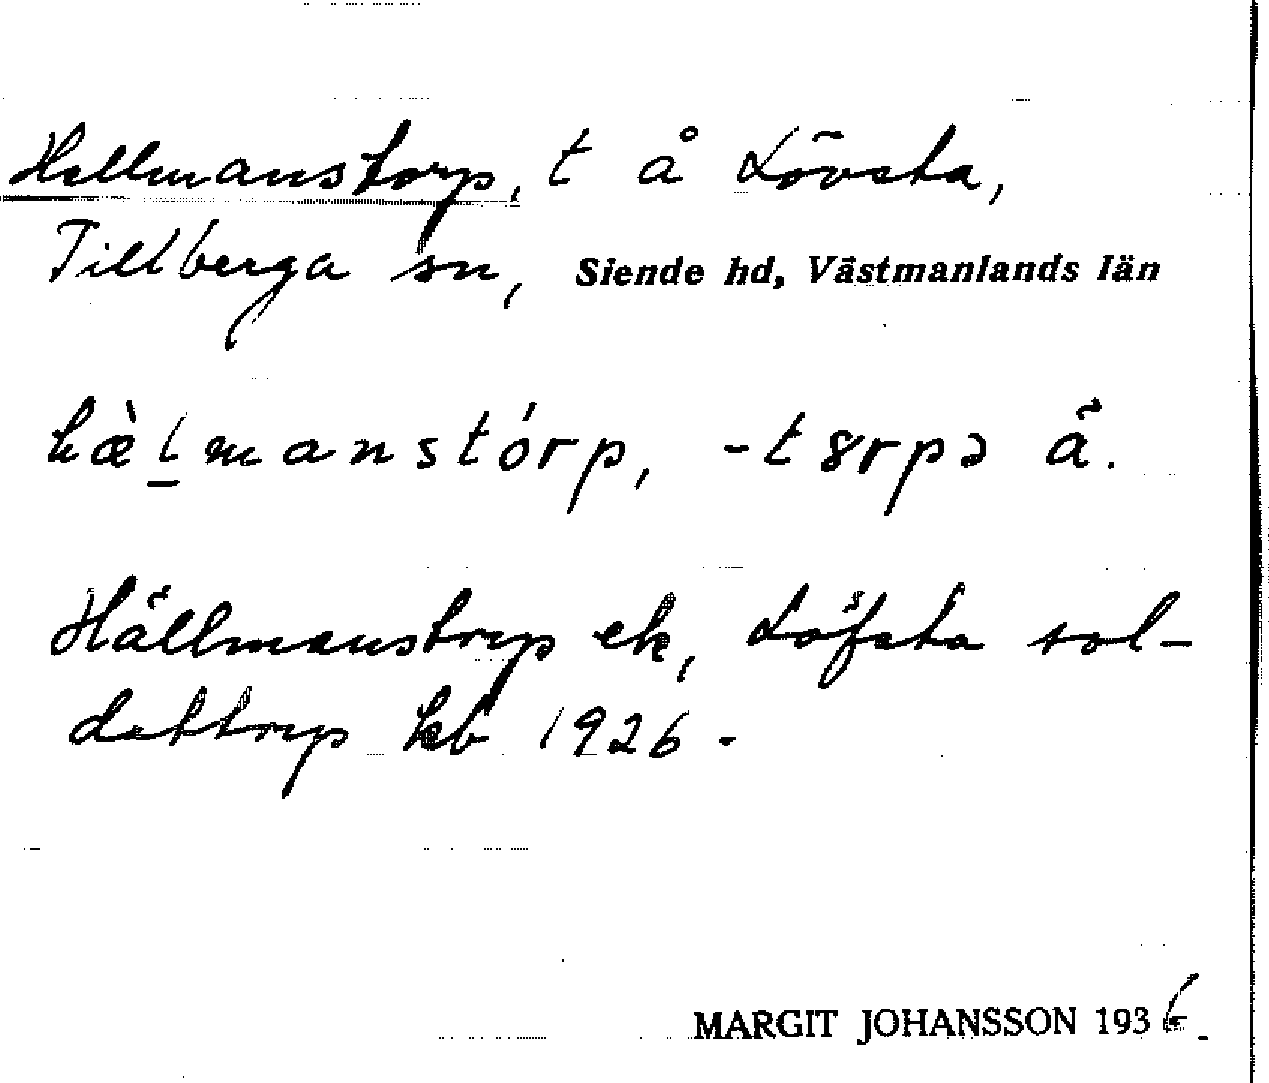 Hellmanstorp, t å Lövsta,
Tillberga sn, Siende hd, Västmanlands län
hæ̀lmanstórp, -tȣrpə ä̃.
Hällmanstrp ek, Löfsta sol-
dattrp kb 1926 -
MARGIT JOHANSSON 1936